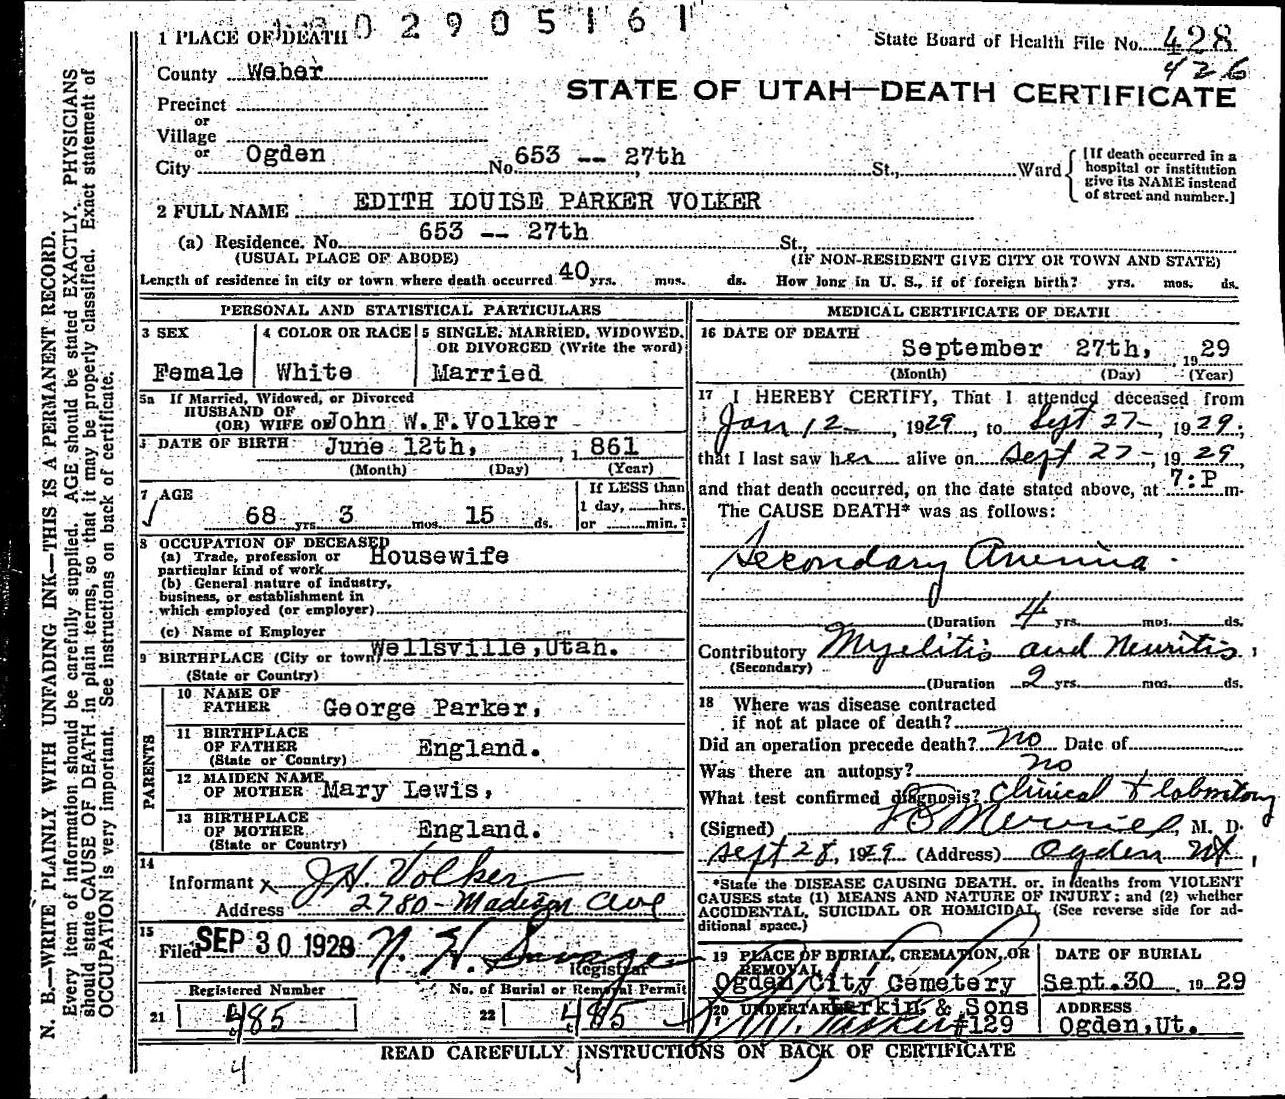 02905161
1 PLACE OF DEATH
State Board of Health File No. 428
426
County Weber
STATE OF UTAH—DEATH CERTIFICATE
Precinct
or
Village
or
City Ogden No. 653 -- 27th St., Ward
[If death occurred in a hospital or institution give its NAME instead of street and number.]
2 FULL NAME EDITH LOUISE PARKER VOLKER
(a) Residence. No. 653 -- 27th St.,
(USUAL PLACE OF ABODE) (IF NON-RESIDENT GIVE CITY OR TOWN AND STATE)
Length of residence in city or town where death occurred 40 yrs. mos. ds. How long in U. S., if of foreign birth? yrs. mos. ds.
N. B.—WRITE PLAINLY WITH UNFADING INK—THIS IS A PERMANENT RECORD.
Every item of information should be carefully supplied. AGE should be stated EXACTLY. PHYSICIANS
should state CAUSE OF DEATH in plain terms, so that it may be properly classified. Exact statement of
OCCUPATION is very important. See instructions on back of certificate.
PERSONAL AND STATISTICAL PARTICULARS
3 SEX
Female
4 COLOR OR RACE
White
5 SINGLE, MARRIED, WIDOWED,
OR DIVORCED (Write the word)
Married
5a If Married, Widowed, or Divorced
HUSBAND OF
(OR) WIFE OF John W.F.Volker
DATE OF BIRTH June 12th, 1861
(Month) (Day) (Year)
7 AGE
68 yrs. 3 mos. 15 ds.
If LESS than
1 day, hrs.
or min.?
8 OCCUPATION OF DECEASED
(a) Trade, profession or
particular kind of work Housewife
(b) General nature of industry,
business, or establishment in
which employed (or employer)
(c) Name of Employer
9 BIRTHPLACE (City or town) Wellsville,Utah.
(State or Country)
PARENTS
10 NAME OF
FATHER George Parker,
11 BIRTHPLACE
OF FATHER England.
(State or Country)
12 MAIDEN NAME
OF MOTHER Mary Lewis,
13 BIRTHPLACE
OF MOTHER England.
(State or Country)
14
Informant x J H. Volker
Address 2780 - Madison Ave
15
Filed SEP 30 1929 N. H. Savage
Registrar
Registered Number
21 485
No. of Burial or Removal Permit
22 485
MEDICAL CERTIFICATE OF DEATH
16 DATE OF DEATH
September 27th, 1929
(Month) (Day) (Year)
17 I HEREBY CERTIFY, That I attended deceased from
Jan 12, 1929, to Sept 27, 1929;
that I last saw her alive on Sept 27, 1929,
and that death occurred, on the date stated above, at 7:P m.
The CAUSE DEATH* was as follows:
Secondary Anemia.
(Duration 4 yrs. mos. ds.
Contributory Myelitis and Neuritis,
(Secondary)
(Duration 2 yrs. mos. ds.
18 Where was disease contracted
if not at place of death?
Did an operation precede death? no Date of
Was there an autopsy? no
What test confirmed diagnosis? Clinical & labratory
(Signed) Merrill, M. D.
Sept 28, 1929 (Address) Ogden Ut,
*State the DISEASE CAUSING DEATH, or, in deaths from VIOLENT
CAUSES state (1) MEANS AND NATURE OF INJURY; and (2) whether
ACCIDENTAL, SUICIDAL OR HOMICIDAL. (See reverse side for ad-
ditional space.)
19 PLACE OF BURIAL, CREMATION, OR
REMOVAL
Ogden City Cemetery
DATE OF BURIAL
Sept.30 1929
20 UNDERTAKER Larkin & Sons
#129
ADDRESS
Ogden,Ut.
READ CAREFULLY INSTRUCTIONS ON BACK OF CERTIFICATE
4